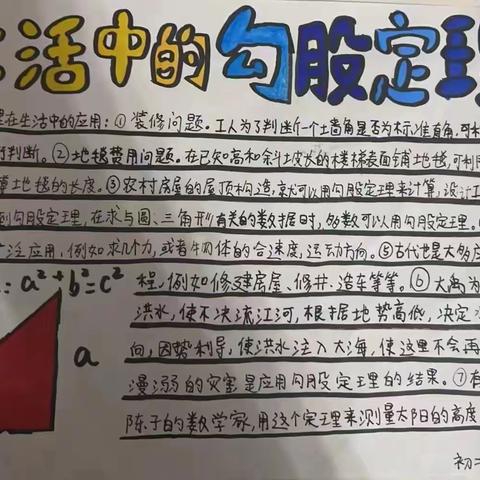 活中的勾股定理
在生活中的应用：①装修问题。工人为了判断一个墙角是否为标准直角，可利
判断。②地毯费用问题。在已知高和斜坡长的楼梯表面铺地毯，可利用
地毯的长度。③农村房屋的屋顶构造，就可以用勾股定理来计算，设计工
到勾股定理，在求与圆、三角形有关的数据时，多数可以用勾股定理。
广泛应用，例如求几个力，或者物体的合速度，运动方向。⑤古代也是大多应
：a²+b²=c²
程，例如修建房屋、修井、造车等等。⑥大禹为
洪水，使不决流江河，根据地势高低，决定
a
向，因势利导，使洪水注入大海，使这里不会再
漫溺的灾害是应用勾股定理的结果。⑦有
陈子的数学家，用这个定理来测量太阳的高度
初二